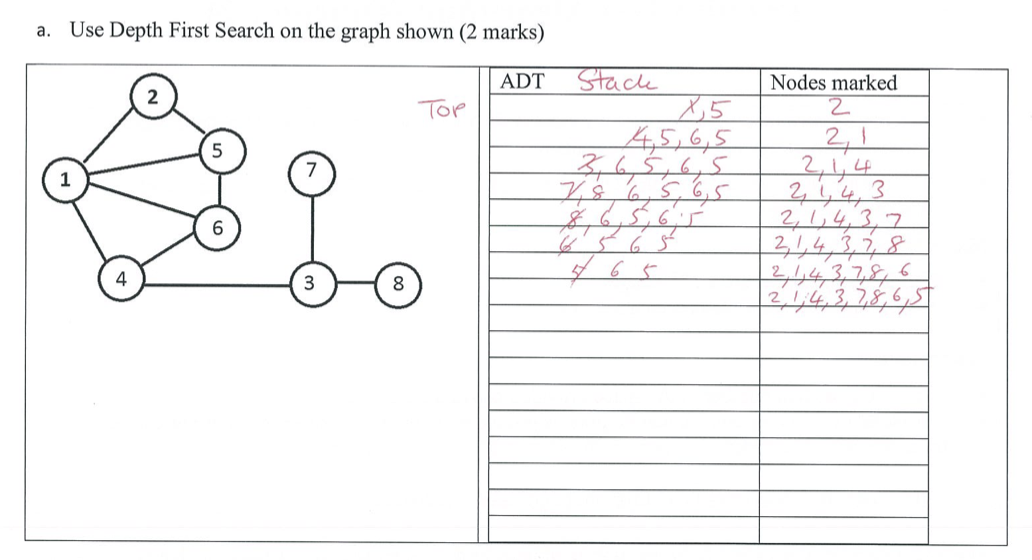 a. Use Depth First Search on the graph shown (2 marks)
2
5
7
1
6
4
3
8
TOP
ADT Stack Nodes marked
1,5 2
4,5,6,5 2,1
3,6,5,6,5 2,1,4
7,8,6,5,6,5 2,1,4,3
8,6,5,6,5 2,1,4,3,7
6 5 6 5 2,1,4,3,7,8
5 6 5 2,1,4,3,7,8,6
2,1,4,3,7,8,6,5